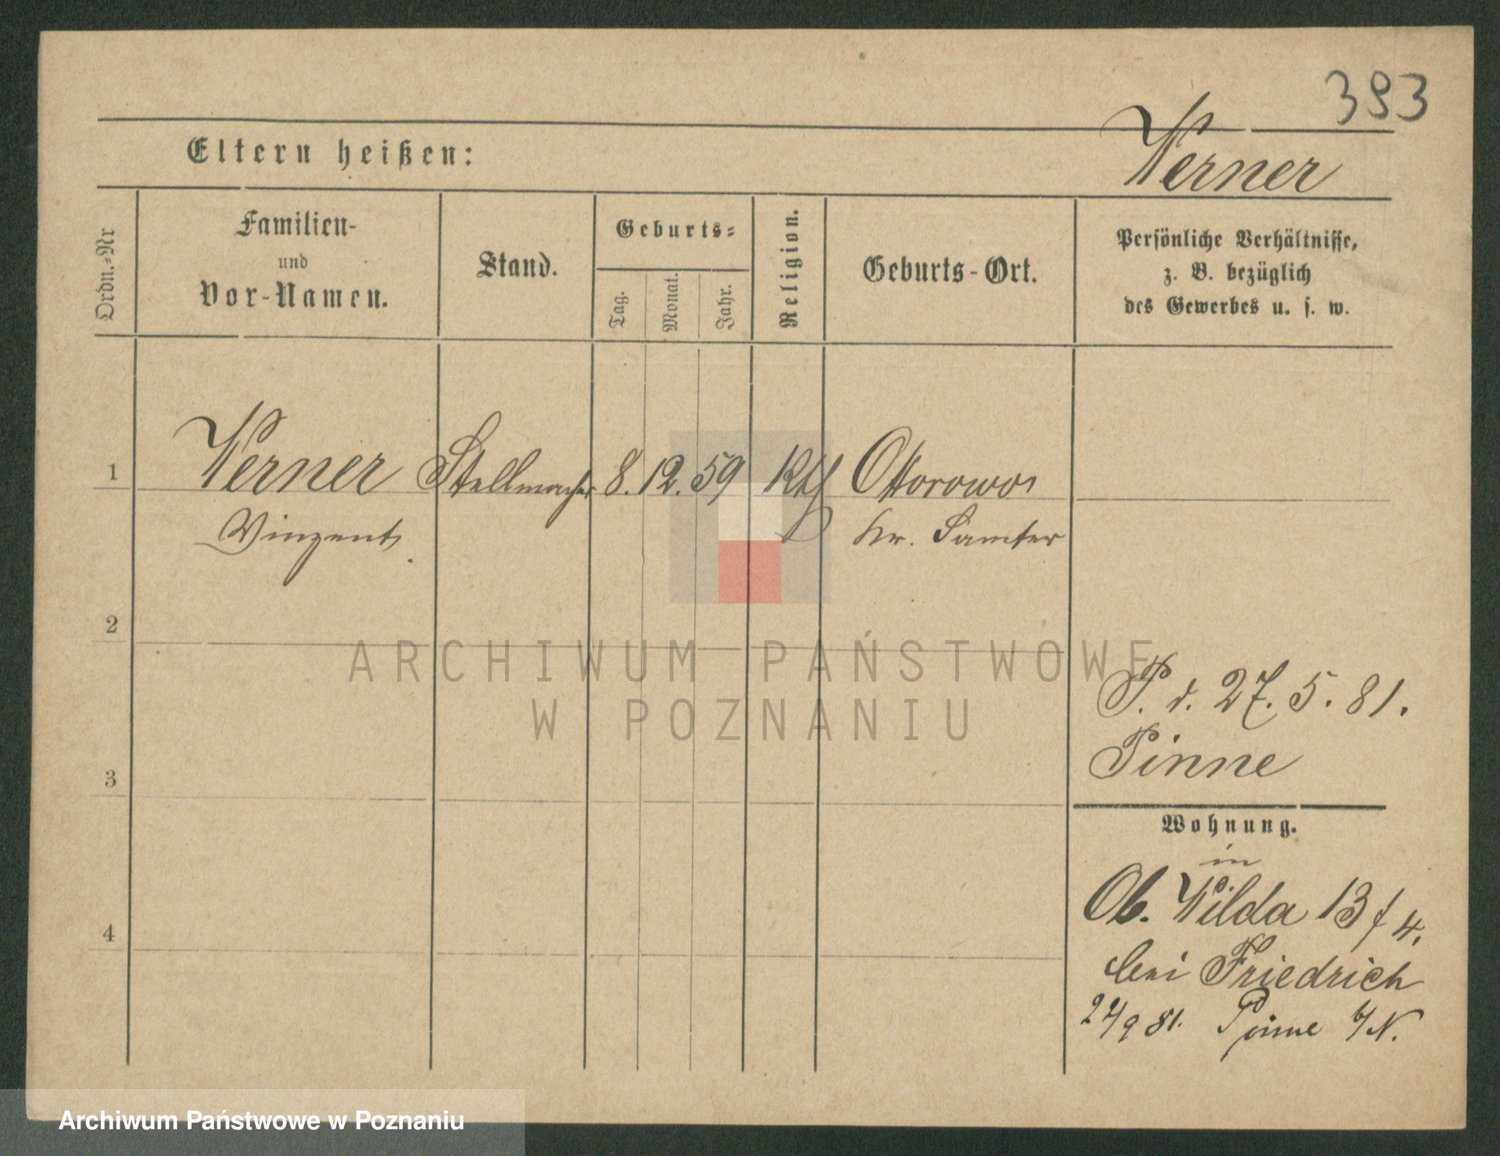 393
Werner
Eltern heißen:
Ordn.-Nr
Familien-
und
Vor-Namen.
Stand.
Geburts-
Tag.
Monat.
Jahr.
Religion.
Geburts-Ort.
Persönliche Verhältnisse,
z. B. bezüglich
des Gewerbes u. s. w.
1 Werner Stellmacher 8. 12. 59 Kth Ottorowo
Vinzent Kr. Samter
2
ARCHIWUM PAŃSTWOWE
W POZNANIU
P. d. 27. 5. 81.
Pinne
3
Wohnung.
in
Ob. Wilda 13 f 4.
4
bei Friedrich
9 81. Pinne
Archiwum Państwowe w Poznaniu